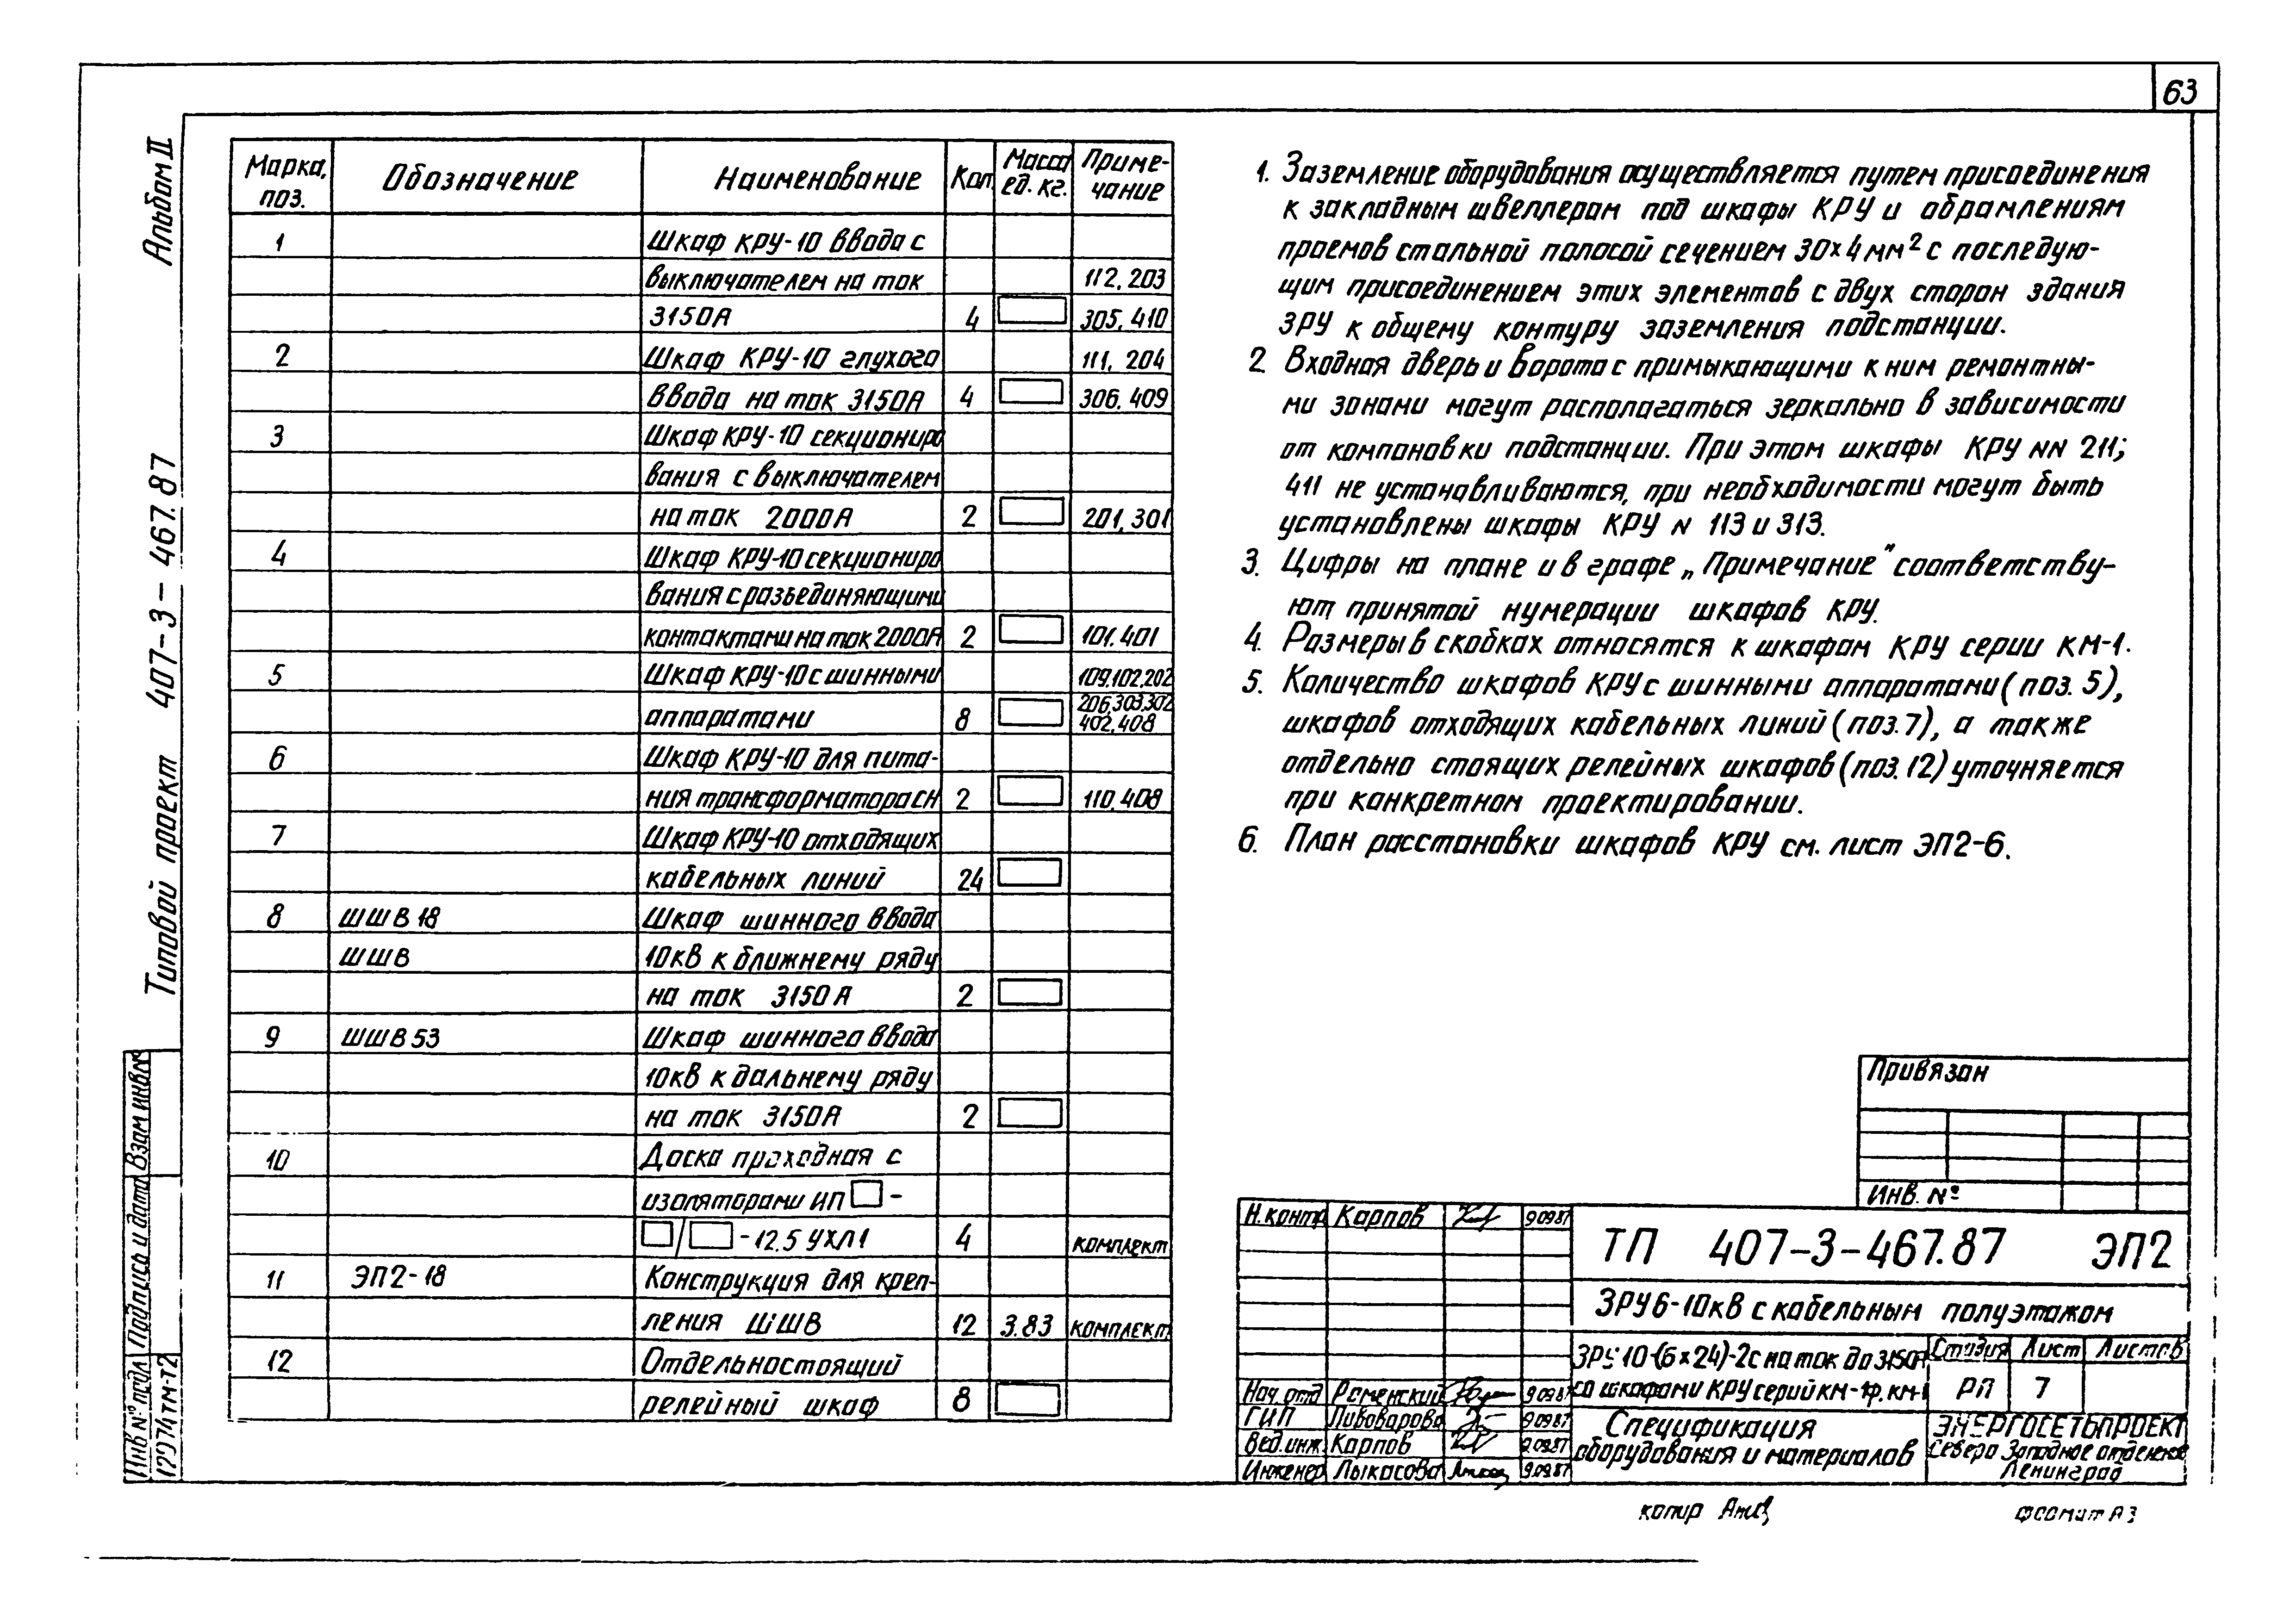 63
Альбом II
Типовой проект 407-3-467.87
Марка, поз. Обозначение Наименование Кол. Масса ед. кг. Примечание
1 Шкаф КРУ-10 ввода с
выключателем на ток 112, 203
3150А 4 305, 410
2 Шкаф КРУ-10 глухого 111, 204
ввода на ток 3150А 4 306, 409
3 Шкаф КРУ-10 секциониро
вания с выключателем
на ток 2000А 2 201, 301
4 Шкаф КРУ-10 секциониро
вания с разъединяющими
контактами на ток 2000А 2 101, 401
5 Шкаф КРУ-10 с шинными 109,102,202
206,303,302
аппаратами 8 402,408
6 Шкаф КРУ-10 для пита-
ния трансформатора СН 2 110,408
7 Шкаф КРУ-10 отходящих
кабельных линий 24
8 ШШВ 18 Шкаф шинного ввода
ШШВ 10кВ к ближнему ряду
на ток 3150А 2
9 ШШВ 53 Шкаф шинного ввода
10кВ к дальнему ряду
на ток 3150А 2
10 Доска проходная с
изоляторами ИП -
/ -12.5 УХЛ1 4 комплект
11 ЭП2-18 Конструкция для креп-
ления ШШВ 12 3.83 комплект
12 Отдельностоящий
релейный шкаф 8
1. Заземление оборудования осуществляется путем присоединения
к закладным швеллерам под шкафы КРУ и обрамлениям
проемов стальной полосой сечением 30×4 мм² с последую-
щим присоединением этих элементов с двух сторон здания
ЗРУ к общему контуру заземления подстанции.
2. Входная дверь и ворота с примыкающими к ним ремонтны-
ми зонами могут располагаться зеркально в зависимости
от компановки подстанции. При этом шкафы КРУ NN 211;
411 не устанавливаются, при необходимости могут быть
установлены шкафы КРУ N 113 и 313.
3. Цифры на плане и в графе „Примечание" соответству-
ют принятой нумерации шкафов КРУ.
4. Размеры в скобках относятся к шкафам КРУ серии КМ-1.
5. Количество шкафов КРУ с шинными аппаратами (поз. 5),
шкафов отходящих кабельных линий (поз. 7), а также
отдельно стоящих релейных шкафов (поз. 12) уточняется
при конкретном проектировании.
6. План расстановки шкафов КРУ см. лист ЭП2-6.
Привязан
Инв. №
Н.контр Карпов 9.09.87
ТП 407-3-467.87 ЭП2
ЗРУ 6-10кВ с кабельным полуэтажом
ЗРУ 10-(6×24)-2с на ток до 3150А
со шкафами КРУ серий КМ-1Ф, КМ-1
Стадия Лист Листов
РП 7
Нач.отд Роменский 9.09.87
ГИП Пивоварова 9.09.87
Вед.инж. Карпов 9.09.87
Инженер Лыкасова 9.09.87
Спецификация
оборудования и материалов
ЭНЕРГОСЕТЬПРОЕКТ
Северо Западное отделение
Ленинград
Взам инв №
Подпись и дата
Инв № подл
12974тм-т2
копир
формат А3